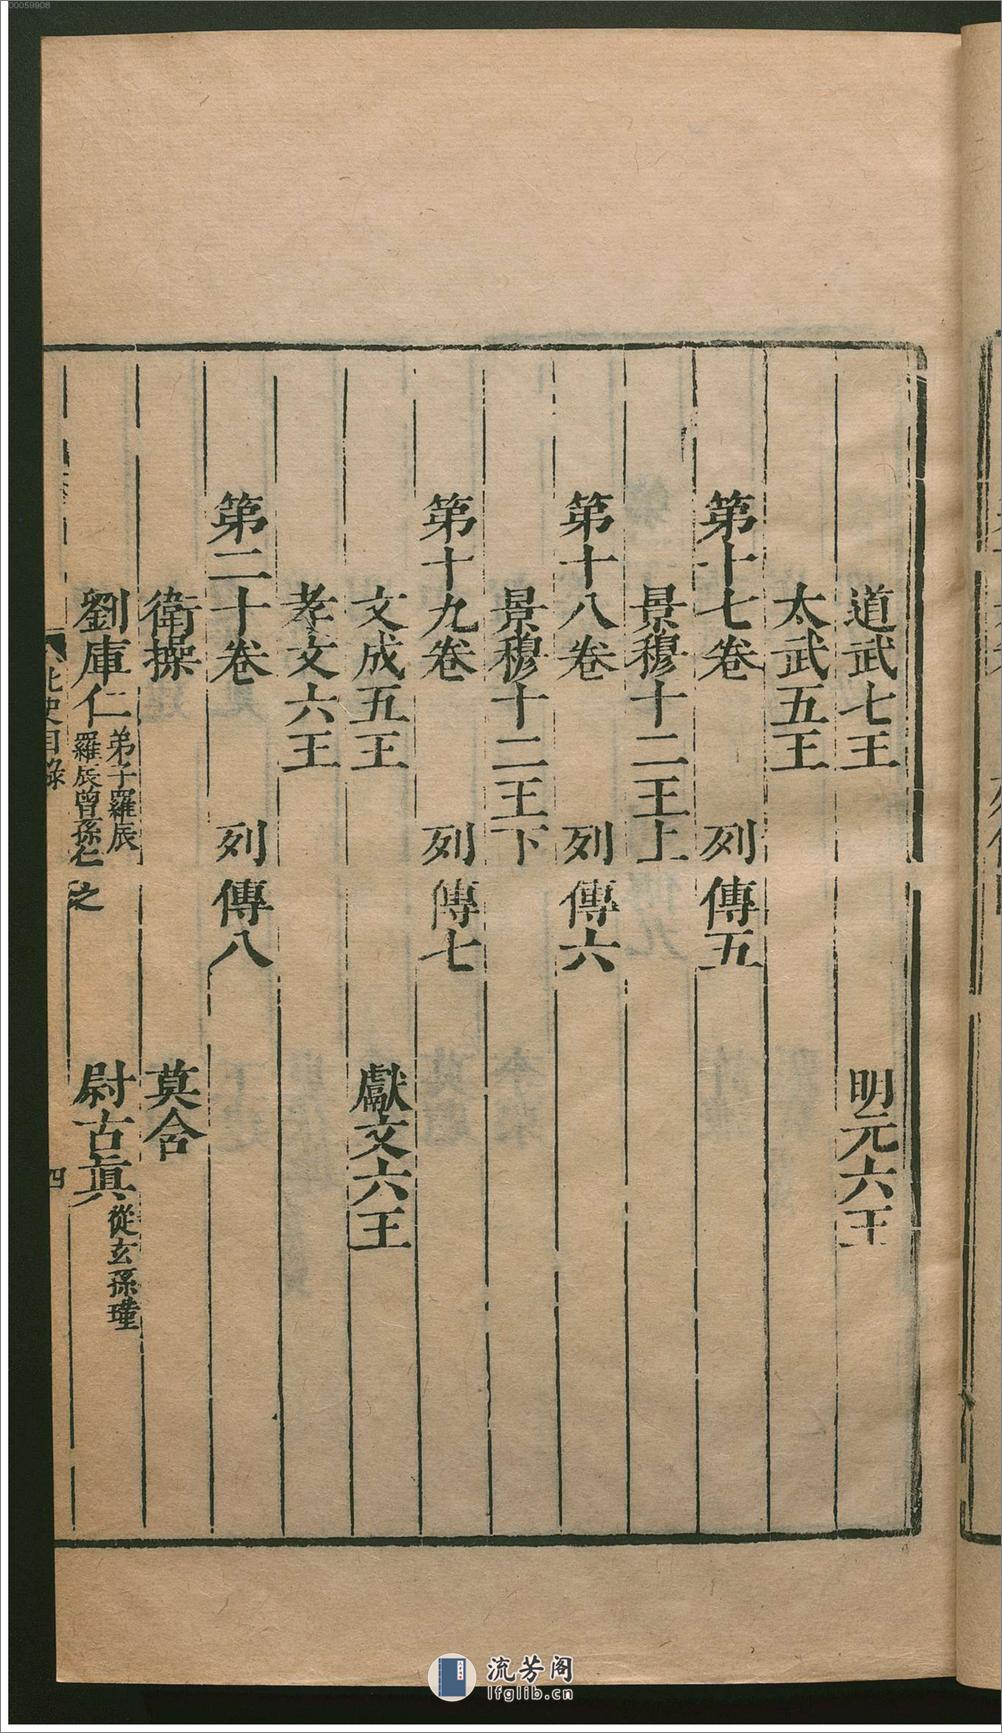 道武七王　明元六王
太武五王
第十七卷　列傳五
景穆十二王上
第十八卷　列傳六
景穆十二王下
第十九卷　列傳七
文成五王　獻文六王
孝文六王
第二十卷　列傳八
衛操　莫含
劉庫仁 弟子羅辰 羅辰曾孫仁之　尉古眞 從玄孫瑾
北史目錄　四
00059908
流芳阁
lfglib.cn